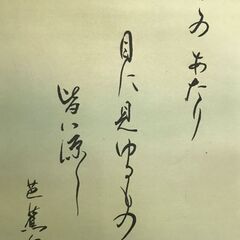 のあたり
目に見ゆるもの
皆涼し
芭蕉